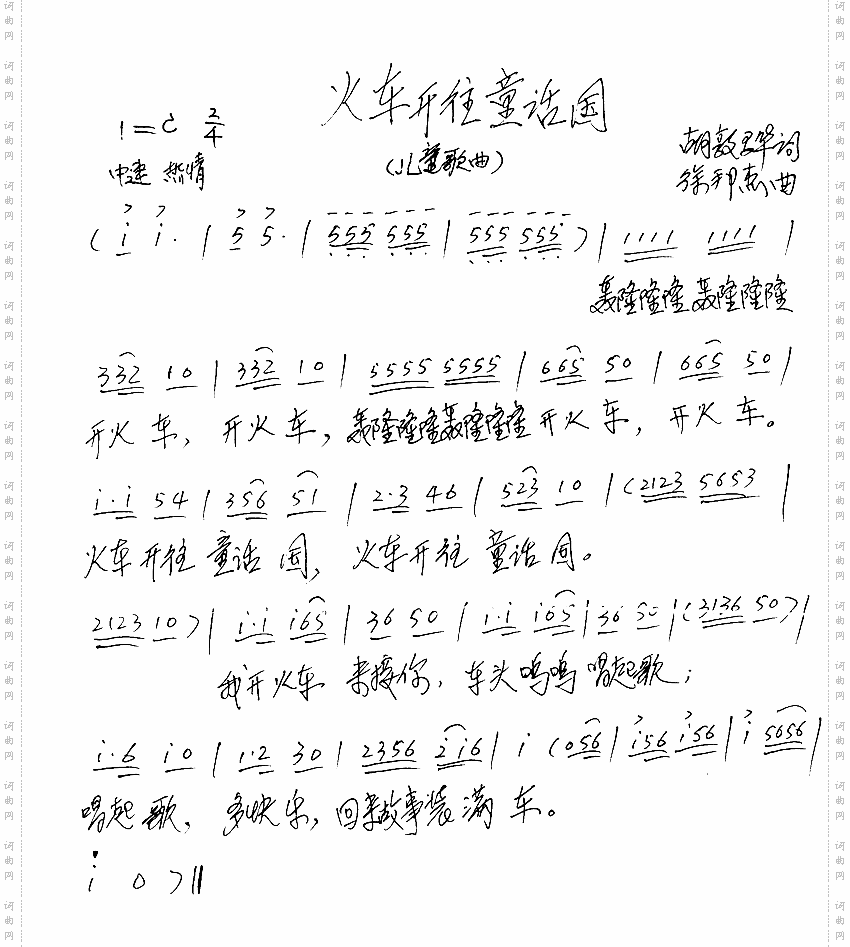 火车开往童话国
1=C 2/4
(儿童歌曲)
中速 热情
胡敦骅词
徐邦杰曲
( i i· | 5 5· | 555 555 | 555 555 ) | 1111 1111 |
轰隆隆隆 轰隆隆隆
332 10 | 332 10 | 5555 5555 | 665 50 | 665 50 |
开火 车, 开火 车, 轰隆隆隆轰隆隆隆 开火 车, 开火 车。
i·i 54 | 356 51 | 2·3 46 | 523 10 | (2123 5653 |
火车 开往 童话 国, 火车 开往 童话 国。
2123 10 ) | i·i i65 | 36 50 | i·i i65 | 36 50 | (3136 50 ) |
我开火车 来接你, 车头呜呜 唱起歌;
i·6 i0 | 1·2 30 | 2356 2i6 | i (056 | i56 i56 | i 5656 |
唱起 歌, 多快乐, 回来故事装满 车。
i 0 ) ‖
词曲网